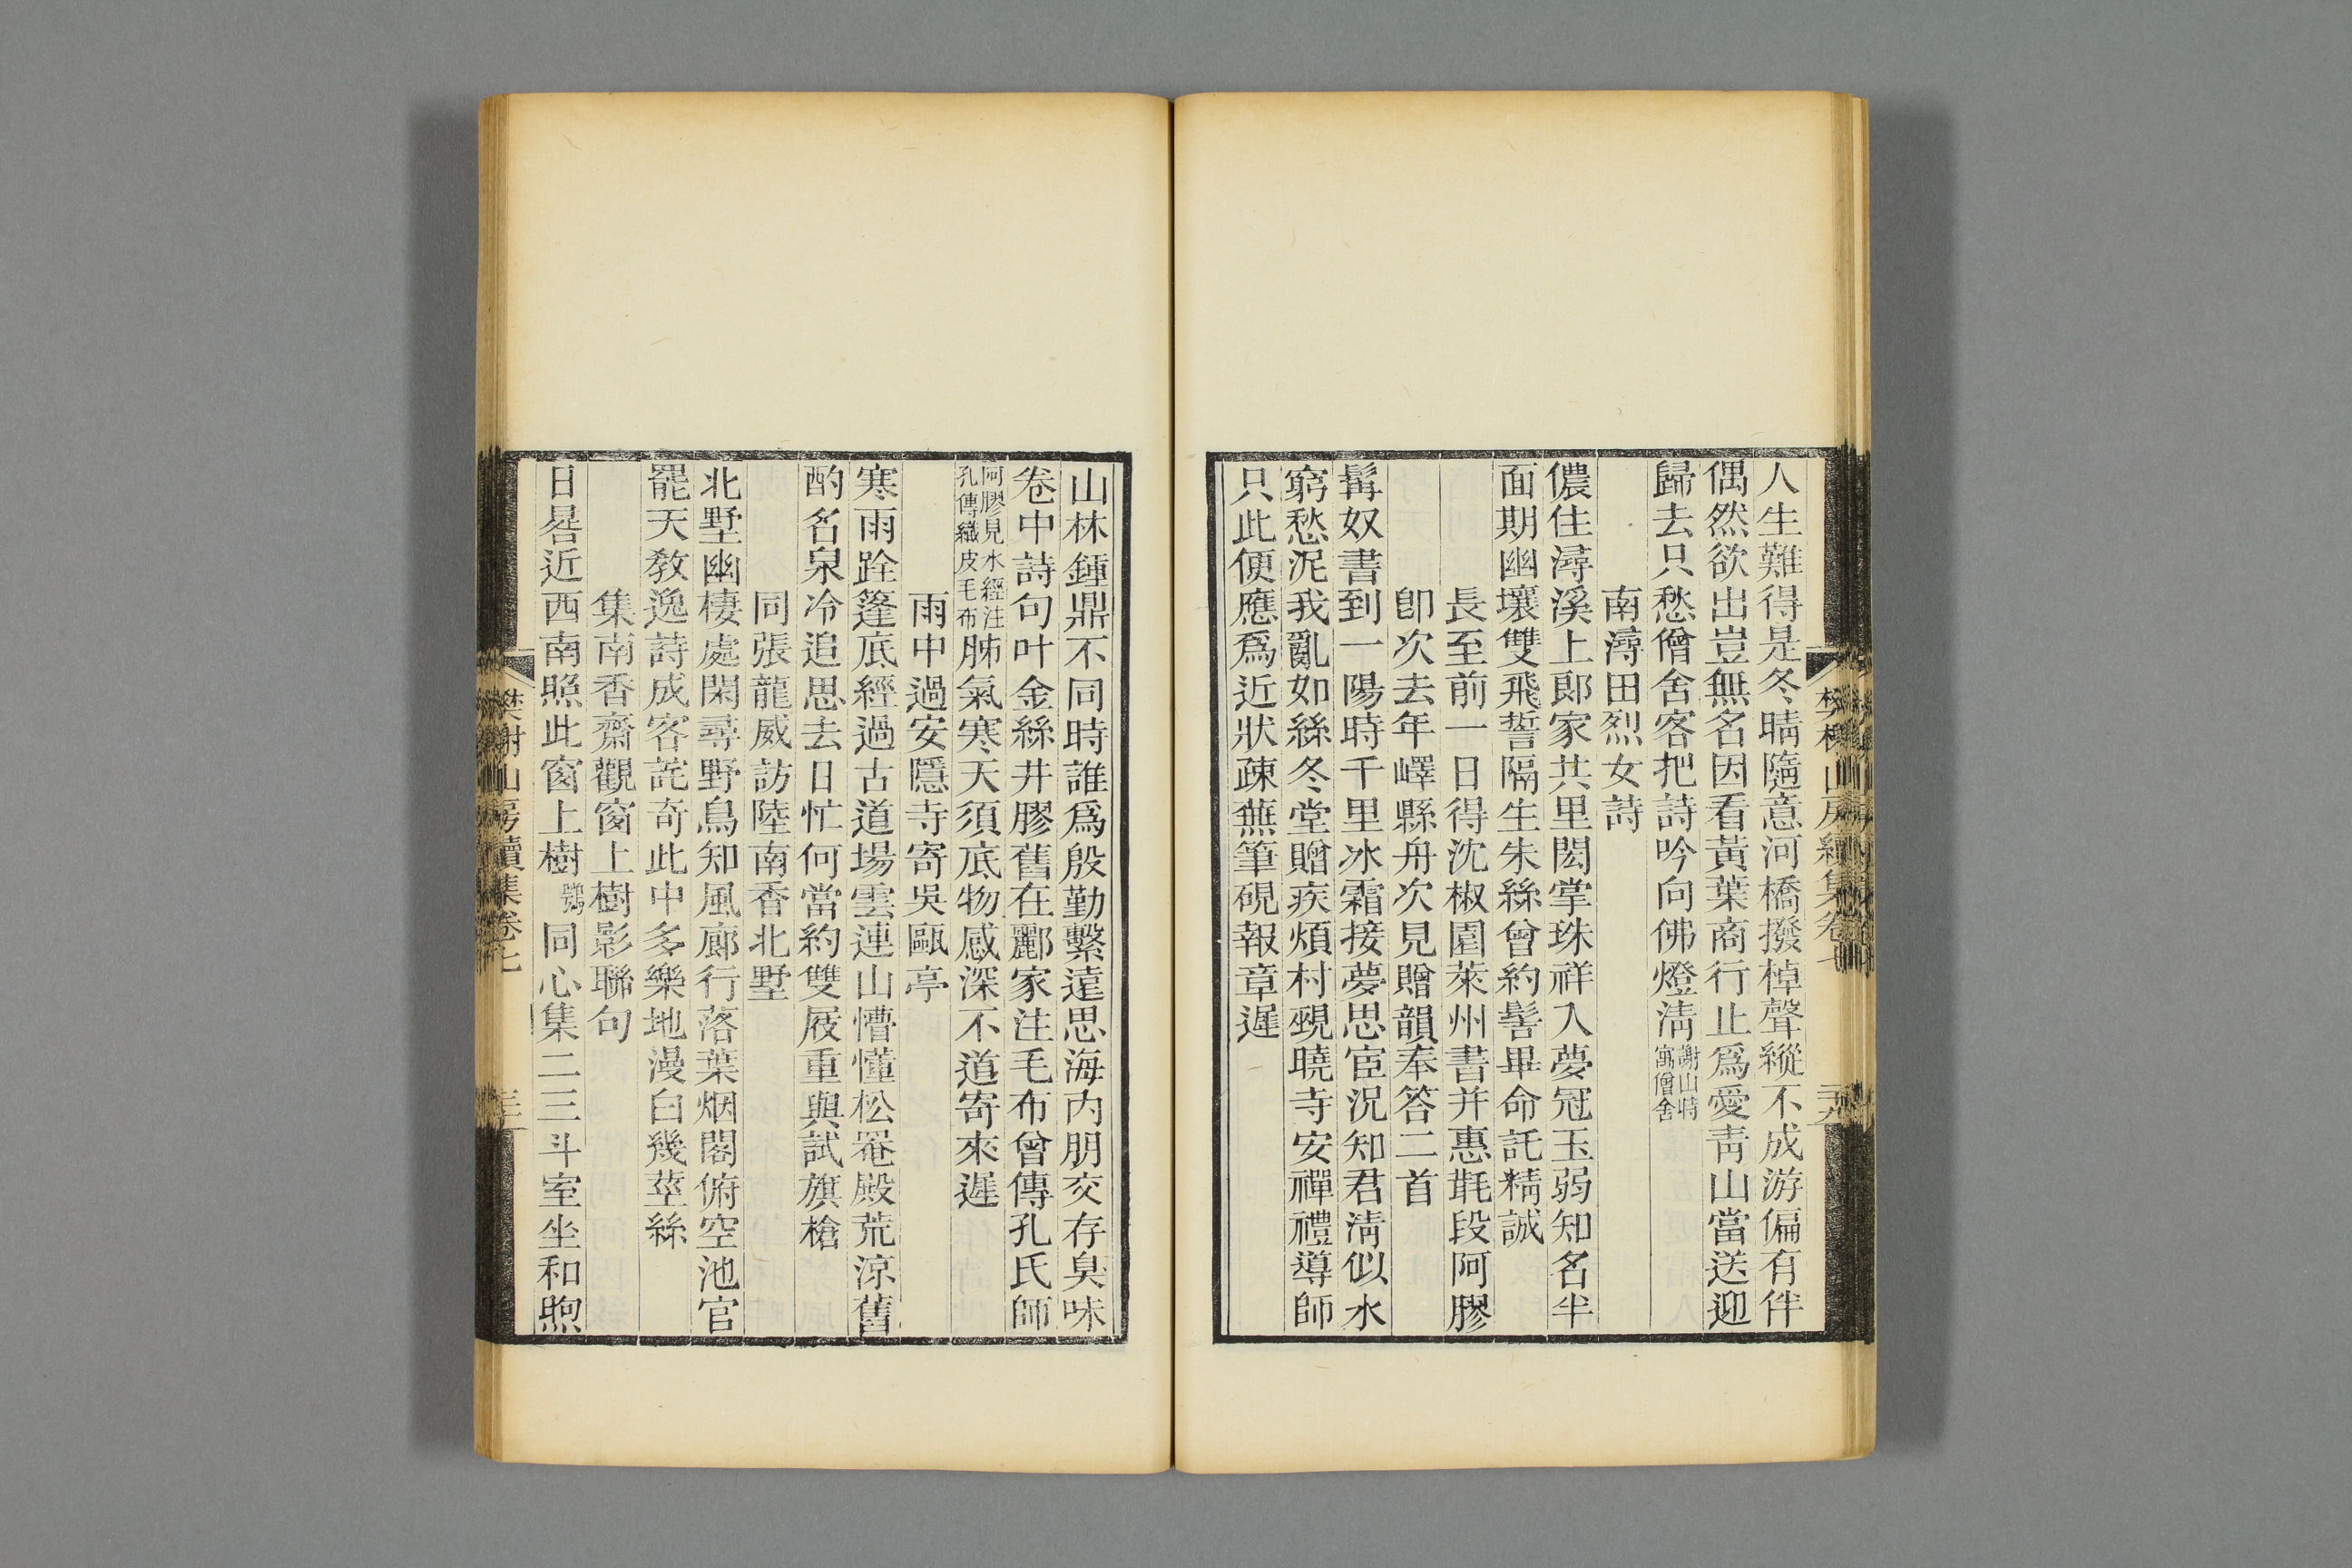 人生難得是冬晴隨意河橋撥棹聲縱不成游偏有伴
偶然欲出豈無名因看黃葉商行止爲愛靑山當送迎
歸去只愁僧舍客把詩吟向佛燈淸謝山時寓僧舍
南潯田烈女詩
儂住潯溪上郞家共里閎掌珠祥入夢冠玉弱知名半
面期幽壤雙飛誓隔生朱絲曾約髻畢命託精誠
長至前一日得沈椒園萊州書并惠毼段阿膠
卽次去年嶧縣舟次見贈韻奉答二首
髯奴書到一陽時千里冰霜接夢思宦況知君淸似水
窮愁泥我亂如絲冬堂贈疾煩村覡曉寺安禪禮導師
只此便應爲近狀疎蕪筆硯報章遲
樊榭山房續集卷七
山林鍾鼎不同時誰爲殷勤繫遠思海內朋交存臭味
卷中詩句叶金絲井膠舊在酈家注毛布曾傳孔氏師
阿膠見水經注孔傳織皮毛布肺氣寒天須底物感深不道寄來遲
雨中過安隱寺寄吳甌亭
寒雨跧篷底經過古道場雲連山懵懂松罨殿荒涼舊
酌名泉冷追思去日忙何當約雙屐重與試旗槍
同張龍威訪陸南香北墅
北墅幽棲處閑尋野鳥知風廊行落葉烟閣俯空池官
罷天敎逸詩成客詫奇此中多樂地漫白幾莖絲
集南香齋觀窗上樹影聯句
日晷近西南照此窗上樹鶚同心集二三斗室坐和煦
樊榭山房續集卷七